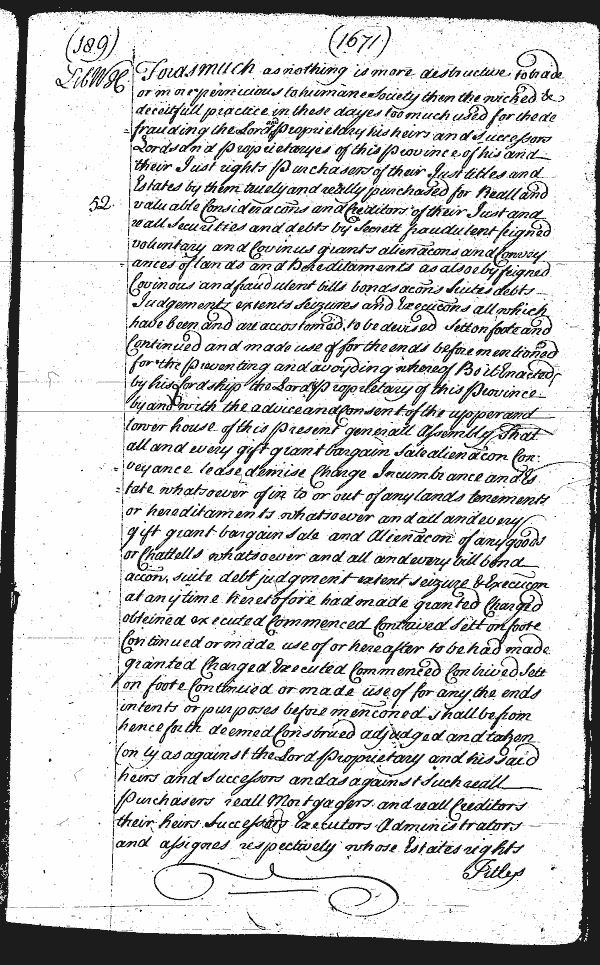 (189)
(1671)
Lib WH
Forasmuch as nothing is more destructive to trade
or more pernicious to humane Society then the wicked &
deceitfull practice in these dayes too much used for the de
frauding the Lord and Proprietary his heirs and Successors
Lords and Proprietaryes of this Province of his and
their Just rights Purchasers of their Just titles and
Estates by them truely and really purchased for Reall and
52.
valuable Consideracons and Creditors of their Just and
reall Securities and debts by Secrett fraudulent feigned
voluntary and Covinus grants alienacons and Convey
ances of lands and Hereditaments as alsoe by feigned
Covinous and fraudulent bills bonds acons Suites debts
Judgements extents Seizures and Execucons all which
have been and are accostomed, to be devised Sett on foote and
Continued and made use of for the ends before mentioned
for the Preventing and avoyding whereof Be it Enacted
by his Lordship the Lord Proprietary of this Province
by and with the advice and Consent of the upper and
lower house of this Present generall Assembly That
all and every gift grant bargain Sale alienacon Con:
veyance lease demise Charge Incumbrance and Es
tate whatsoever of in to or out of any lands tenements
or hereditaments whatsoever and all and every
gift grant bargain Sale and Alienacon of any goods
or Chattells whatsoever and all and every bill bond
accon, suite debt judgment extent seizure & Execucon
at any time heretofore had made granted Charged
obteined executed Commenced Contrived Sett on foote
Continued or made use of or hereafter to be had made
granted Charged Executed Commenced Contrived Sett
on foote Continued or made use of for any the ends
intents or purposes before menconed Shall be from
henceforth deemed Construed adjudged and taken
(only as against the Lord Proprietary and his said
heirs and Successors and as against Such reall
Purchasers reall Mortgagers and reall Creditors
their heirs Successors Executors Administrators
and assignes respectively whose Estates rights
Titles